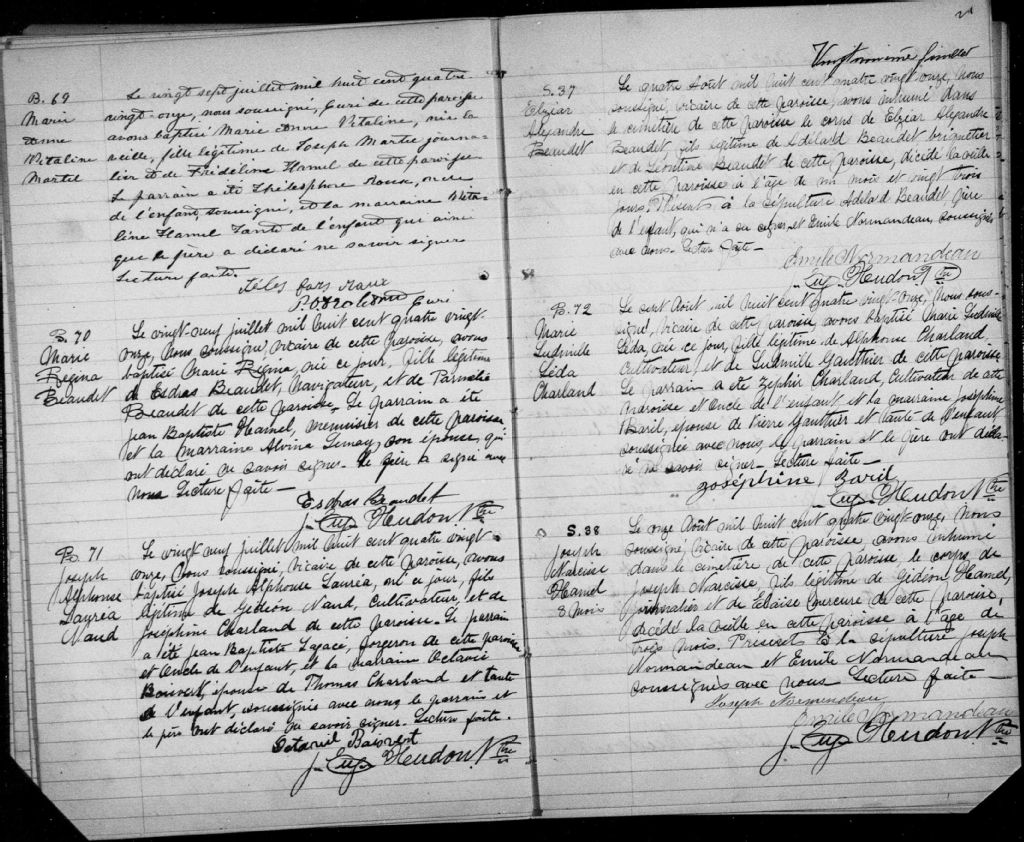 B. 69
Marie
Anne
Vitaline
Martel
Le vingt sept juillet mil huit cent quatre
vingt-onze, nous soussigné, Curé de cette paroisse
avons baptisé Marie Anne Vitaline, née la
veille, fille légitime de Joseph Martel journa-
lier et de Fridéline Hamel de cette paroisse
Le parrain a été Thélesphore Roux, oncle
de l'enfant, soussigné, et la marraine Vita-
line Hamel tante de l'enfant qui ainsi
que le père a déclaré ne savoir signer
Lecture faite.
Curé
B. 70
Marie
Regina
Beaudet
Le vingt-neuf juillet mil huit cent quatre vingt-
onze, nous soussigné, vicaire de cette paroisse, avons
baptisé Marie Regina, née ce jour, fille légitime
de Esdras Beaudet, navigateur, et de Parmélie
Beaudet de cette paroisse. Le parrain a été
Jean Baptiste Hamel, menuisier de cette paroisse
et la marraine Alvina Lemay, son épouse, qui
ont déclaré ne savoir signer. Le père a signé avec
nous Lecture faite —
Esdras Beaudet
J. Eug. Heudon Ptre
B. 71
Joseph
Alphonse
Lauréa
Naud
Le vingt neuf juillet mil huit cent quatre vingt-
onze, nous soussigné, vicaire de cette paroisse, avons
baptisé Joseph Alphonse Lauréa, né ce jour, fils
légitime de Gédéon Naud, Cultivateur, et de
Joséphine Charland de cette paroisse. Le parrain
a été Jean Baptiste Lagacé, forgeron de cette paroisse
et oncle de l'enfant, et la marraine Octavie
Boisvert, épouse de Thomas Charland et tante
de l'enfant, soussignée avec nous, le parrain et
le père ont déclaré ne savoir signer. Lecture faite.
J. Eug. Heudon Ptre
Vingt unième feuillet
S. 37
Elzéar
Alexandre
Beaudet
Le quatre Août mil huit cent quatre vingt onze, nous
soussigné, vicaire de cette paroisse, avons inhumé dans
le cimetière de cette paroisse le corps de Elzéar Alexandre
Beaudet fils légitime de Adélard Beaudet briquetier
et de Léontine Beaudet de cette paroisse, décédé la veille
en cette paroisse à l'âge de un mois et vingt trois
jours. Présents à la sépulture Adélard Beaudet, père
de l'enfant, qui n'a su signer, et Emile Normandeau, soussigné
avec nous. Lecture faite —
Emile Normandeau
J. Eug. Heudon Ptre
B. 72
Marie
Ludiville
Léda
Charland
Le sept Août mil huit cent quatre vingt-onze, nous sous-
signé, vicaire de cette paroisse, avons baptisé Marie Ludiville
Léda, née ce jour, fille légitime de Alphonse Charland
Cultivateur, et de Ludiville Gauthier de cette paroisse.
Le parrain a été Zéphir Charland, Cultivateur de cette
paroisse et oncle de l'enfant et la marraine Joséphine
Baril, épouse de Pierre Gauthier et tante de l'enfant
soussignée avec nous, le parrain et le père ont décla-
ré ne savoir signer — Lecture faite —
Joséphine Baril
J. Eug. Heudon Ptre
S. 38
Joseph
Narcisse
Hamel
3 mois
Le onze Août mil huit cent quatre vingt-onze, nous
soussigné, vicaire de cette paroisse, avons inhumé
dans le cimetière de cette paroisse le corps de
Joseph Narcisse, fils légitime de Gédéon Hamel,
journalier et de Elaise Courcure de cette paroisse,
décédé la veille en cette paroisse à l'âge de
trois mois. Présents à la sépulture Joseph
Normandeau et Emile Normandeau
soussignés avec nous Lecture faite —
Joseph Normandeau
Emile Normandeau
J. Eug. Heudon Ptre